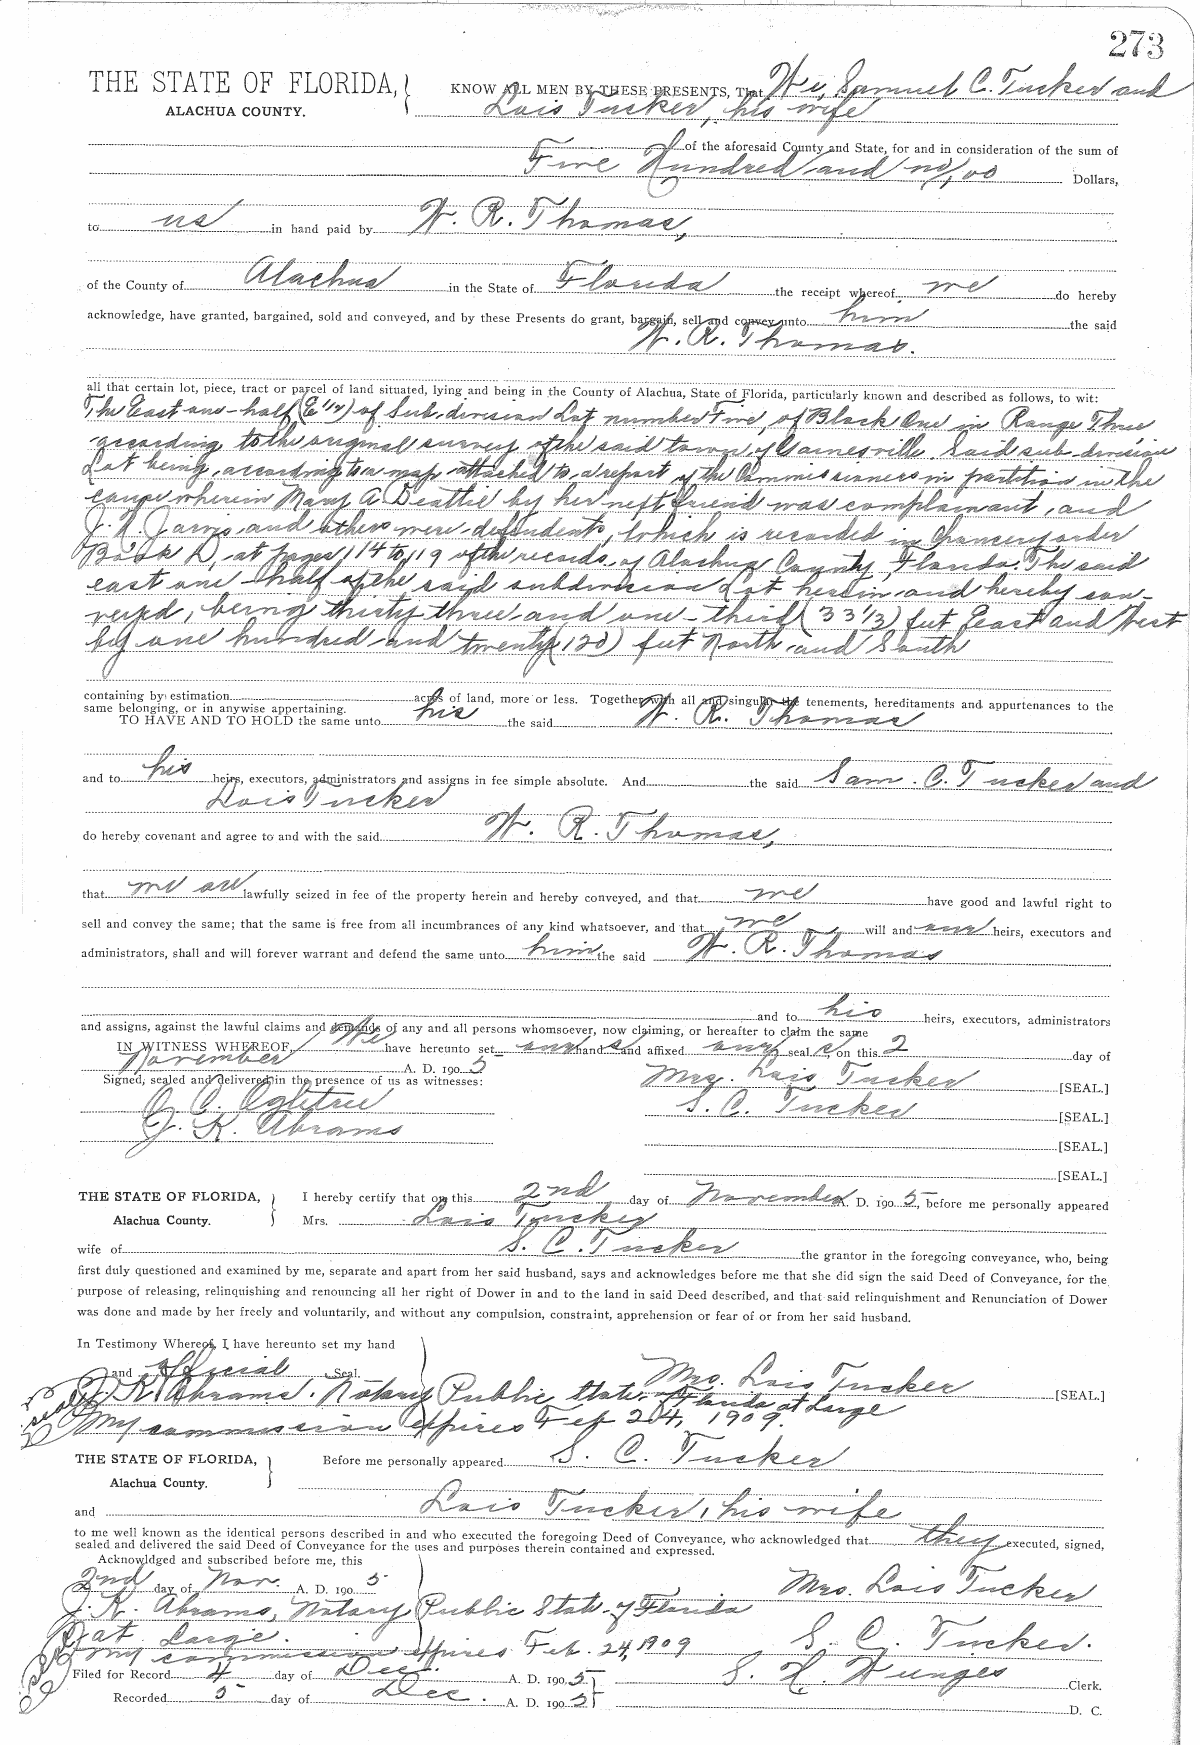 273
THE STATE OF FLORIDA, KNOW ALL MEN BY THESE PRESENTS, That We, Samuel C. Tucker and
ALACHUA COUNTY. Lois Tucker, his wife
of the aforesaid County and State, for and in consideration of the sum of
Five Hundred and no/00 Dollars,
to us in hand paid by W. R. Thomas,
of the County of Alachua in the State of Florida the receipt whereof we do hereby
acknowledge, have granted, bargained, sold and conveyed, and by these Presents do grant, bargain, sell and convey unto him the said
W. R. Thomas.
all that certain lot, piece, tract or parcel of land situated, lying and being in the County of Alachua, State of Florida, particularly known and described as follows, to wit:
The East one-half (E 1/2) of Sub-division Lot number Five, of Block One in Range Three
according to the original survey of the said town of Gainesville. Said sub-division
Lot being, according to a map attached to a report of the Commissioners in partition in the
cause wherein Mary A Beattie by her next friend was complainant, and
J. N. Jarvis and others were defendents, which is recorded in Chancery order
Book D, at pages 114 to 119 of the records of Alachua County, Florida. The said
east one-half of the said subdivision Lot herein and hereby con-
veyed, being thirty three and one-third (33 1/3) feet East and West
by one hundred and twenty (120) feet North and South
containing by estimation acres of land, more or less. Together with all and singular the tenements, hereditaments and appurtenances to the
same belonging, or in anywise appertaining.
TO HAVE AND TO HOLD the same unto his the said W. R. Thomas
and to his heirs, executors, administrators and assigns in fee simple absolute. And the said Sam. C. Tucker and
Lois Tucker
do hereby covenant and agree to and with the said W. R. Thomas,
that we are lawfully seized in fee of the property herein and hereby conveyed, and that we have good and lawful right to
sell and convey the same; that the same is free from all incumbrances of any kind whatsoever, and that we will and our heirs, executors and
administrators, shall and will forever warrant and defend the same unto him the said W. R. Thomas
and to his heirs, executors, administrators
and assigns, against the lawful claims and demands of any and all persons whomsoever, now claiming, or hereafter to claim the same
IN WITNESS WHEREOF, We have hereunto set our hands and affixed our seals on this 2 day of
November A. D. 1905
Signed, sealed and delivered in the presence of us as witnesses: Mrs. Lois Tucker [SEAL.]
O. C. Ogletree S. C. Tucker [SEAL.]
J. K. Abrams [SEAL.]
[SEAL.]
THE STATE OF FLORIDA, I hereby certify that on this 2nd day of November A. D. 1905, before me personally appeared
Alachua County. Mrs. Lois Tucker
wife of S. C. Tucker the grantor in the foregoing conveyance, who, being
first duly questioned and examined by me, separate and apart from her said husband, says and acknowledges before me that she did sign the said Deed of Conveyance, for the
purpose of releasing, relinquishing and renouncing all her right of Dower in and to the land in said Deed described, and that said relinquishment and Renunciation of Dower
was done and made by her freely and voluntarily, and without any compulsion, constraint, apprehension or fear of or from her said husband.
In Testimony Whereof, I have hereunto set my hand
and official Seal. Mrs. Lois Tucker [SEAL.]
seal J. K. Abrams. Notary Public State of Florida at Large
My commission expires Feb 24, 1909.
THE STATE OF FLORIDA, Before me personally appeared S. C. Tucker
Alachua County.
and Lois Tucker, his wife
to me well known as the identical persons described in and who executed the foregoing Deed of Conveyance, who acknowledged that they executed, signed,
sealed and delivered the said Deed of Conveyance for the uses and purposes therein contained and expressed.
Acknowldged and subscribed before me, this
2nd day of Nov. A. D. 1905 Mrs. Lois Tucker
J. K. Abrams, Notary Public State of Florida
at Large. S. C. Tucker.
seal My commission expires Feb. 24, 1909
Filed for Record 4 day of Dec. A. D. 1905 S. H. Wienges Clerk.
Recorded 5 day of Dec. A. D. 1905 D. C.